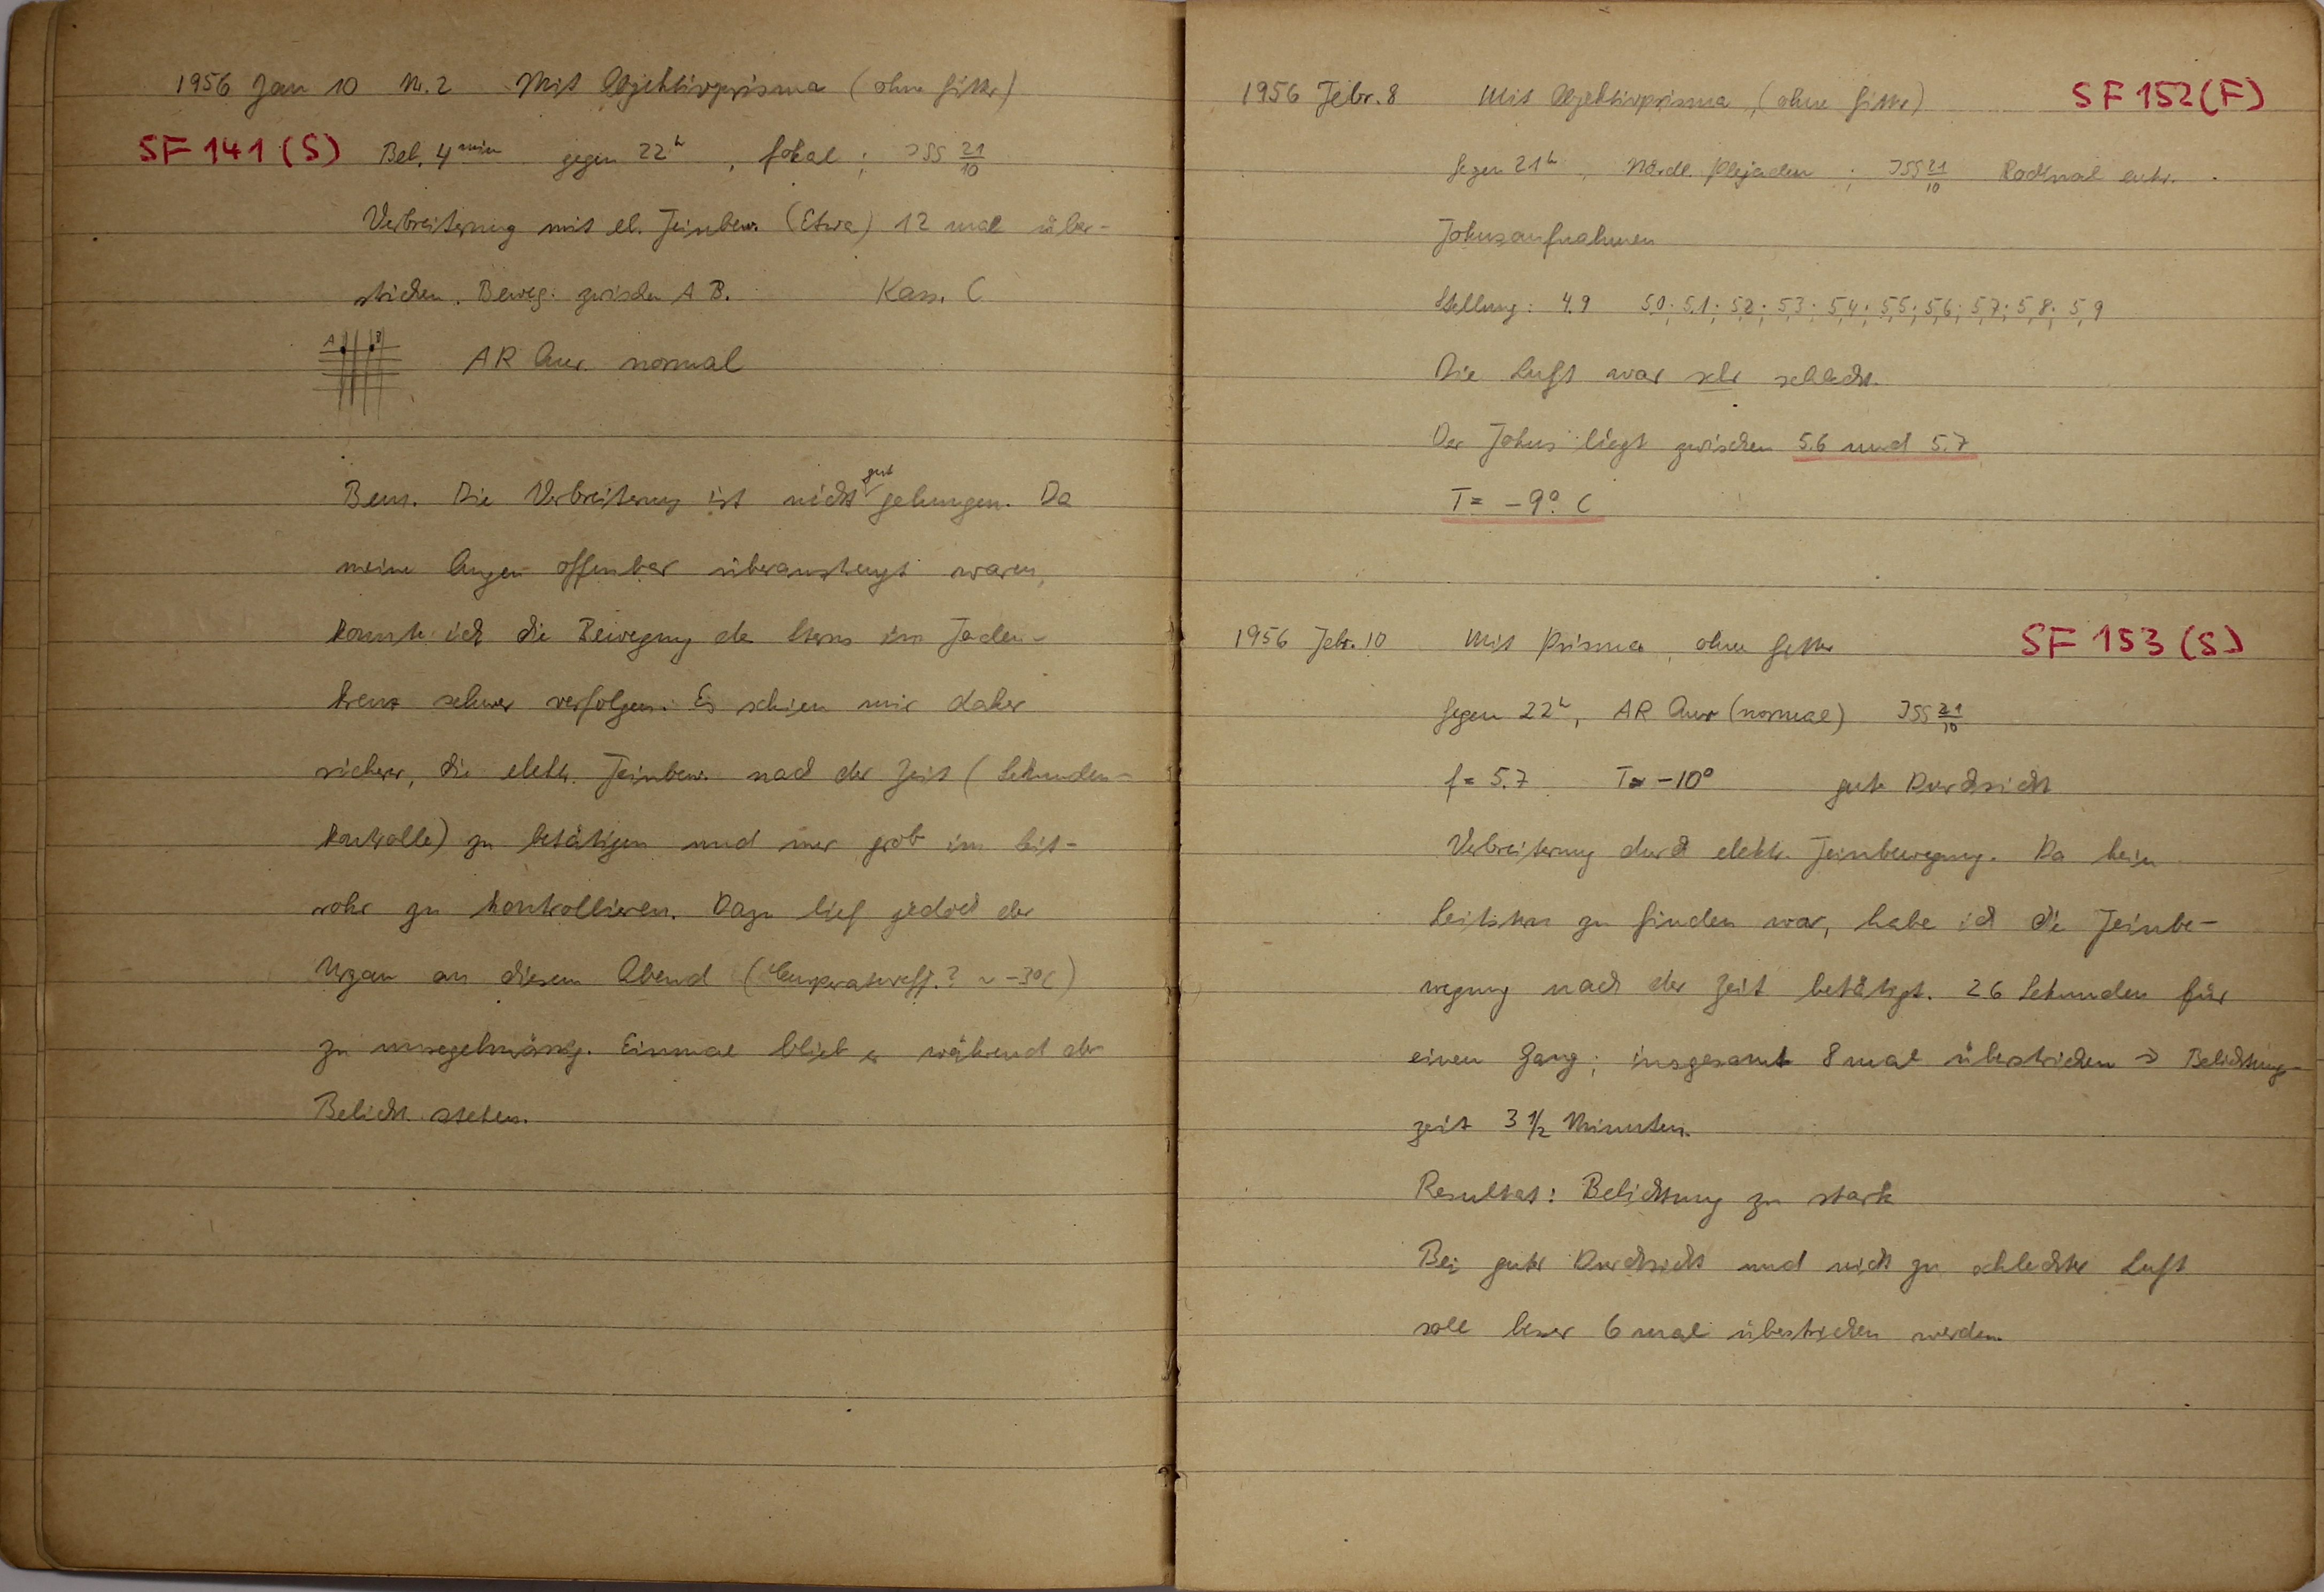 1956 Jan 10 Nr. 2 Mit Objektivprisma (ohne Gitter)
SF 141 (S) Bel. 4 min gegen 22h, fokal; JSS 21/10
Verbreiterung mit el. Feinbew. (Etwa) 12 mal über-
strichen. Beweg. zwischen A B. Kass. C
A B AR Aur. normal
Bem. Die Verbreiterung ist nicht gut gelungen. Da
meine Augen offenbar überanstrengt waren,
konnte ich die Bewegung des Sterns im Faden-
kreuz schwer verfolgen. Es schien mir daher
sicherer, die elektr. Feinbew. nach der Zeit (Sekunden-
kontrolle) zu betätigen und nur grob im Leit-
rohr zu kontrollieren. Dazu lief jedoch der
an diesem Abend (Temperatureff.? ~ -3°C)
zu unregelmässig. Einmal blieb er während der
Belicht. stehen.
1956 Febr. 8 Mit Objektivprisma, (ohne Gitter) SF 152 (F)
Gegen 21h, Nördl. Plejaden; JSS 21/10 Rodinal entw.
Fokusaufnahmen
Stellung: 4.9 5.0; 5.1; 5.2; 5.3; 5.4; 5.5; 5.6; 5.7; 5.8; 5.9
Die Luft war sehr schlecht.
Der Fokus liegt zwischen 5.6 und 5.7
T = -9° C
1956 Febr. 10 Mit Prisma, ohne Gitter SF 153 (S)
Gegen 22h, AR Aur (normal) JSS 21/10
f = 5.7 T = -10° gute Durchsicht
Verbreiterung durch elektr. Feinbewegung. Da kein
Leitstern zu finden war, habe ich die Feinbe-
wegung nach der Zeit betätigt. 26 Sekunden für
einen Gang; insgesamt 8 mal überstrichen → Belichtungs-
zeit 3 1/2 Minuten.
Resultat: Belichtung zu stark
Bei guter Durchsicht und nicht zu schlechter Luft
soll besser 6 mal überstrichen werden.